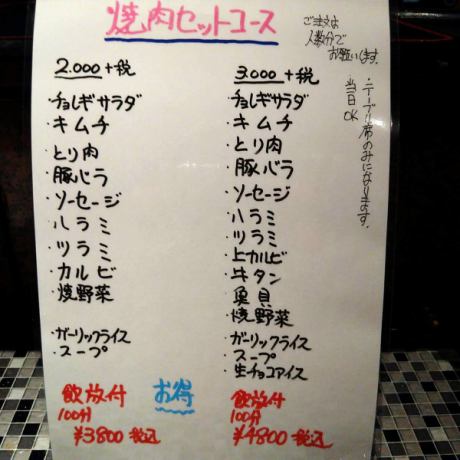 焼肉セットコース
ご注文は
人数分で
お願いします。
・テーブル席のみになります。
当日OK
2.000+税
・チョレギサラダ
・キムチ
・とり肉
・豚バラ
・ソーセージ
・ハラミ
・ツラミ
・カルビ
・焼野菜
・ガーリックライス
・スープ
飲放付
100分
¥3800税込
お得
3.000+税
・チョレギサラダ
・キムチ
・とり肉
・豚バラ
・ソーセージ
・ハラミ
・ツラミ
・上カルビ
・牛タン
・魚貝
・焼野菜
・ガーリックライス
・スープ
・生チョコアイス
飲放付
100分
¥4800税込